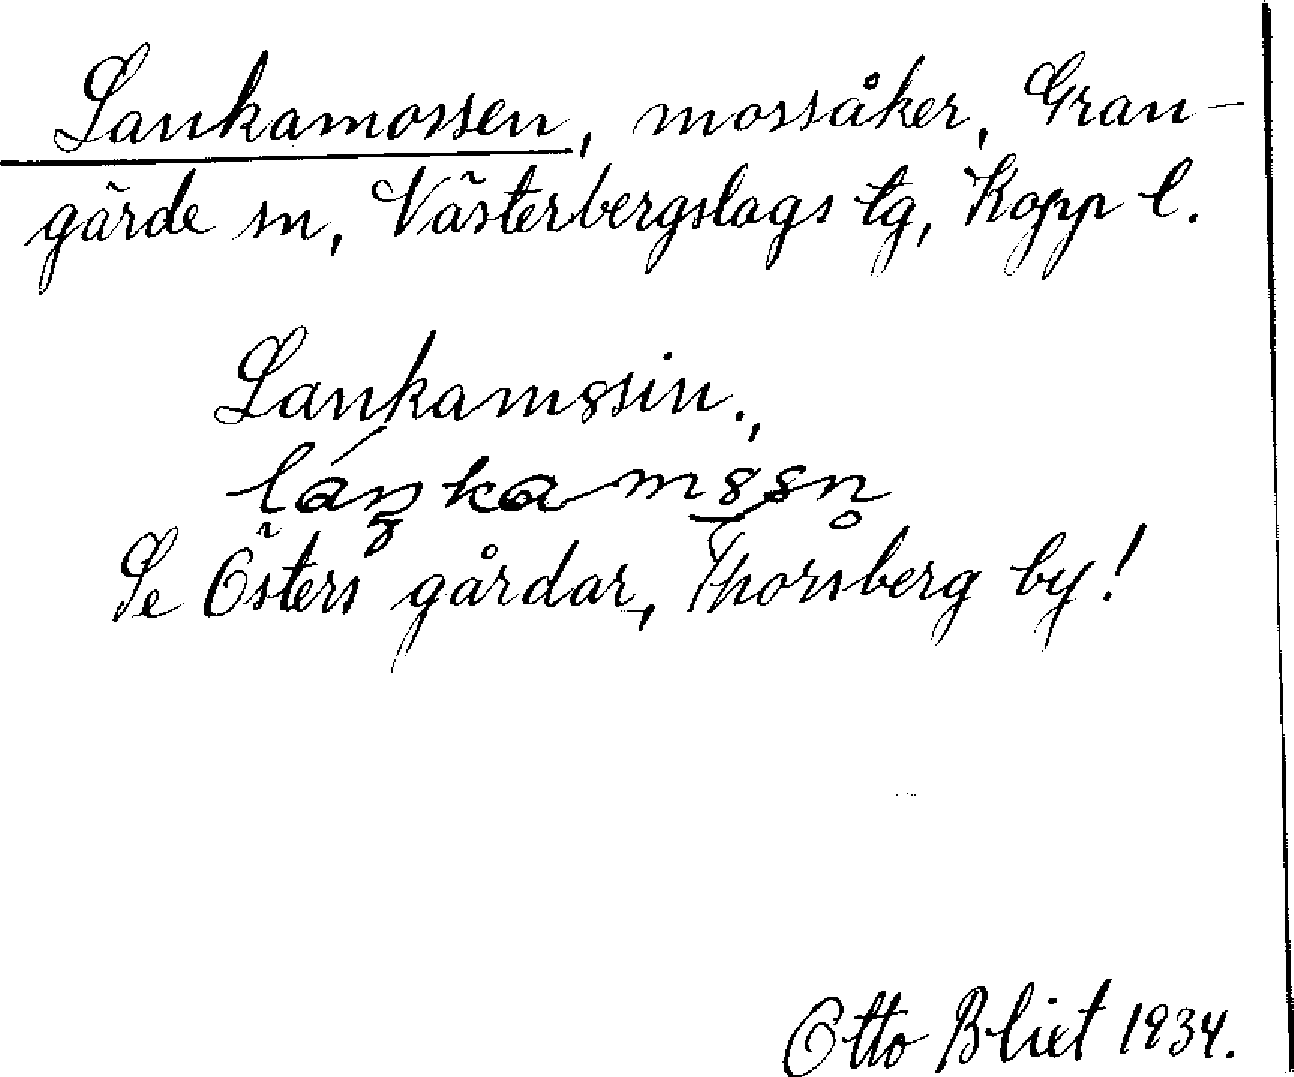 Lankamossen, mossåker, Gran-
gärde sn, Västerbergslags tg, Kopp l.
Lankamssin.,
Se Östers gårdar, Thorsberg by!
Otto Blixt 1934.